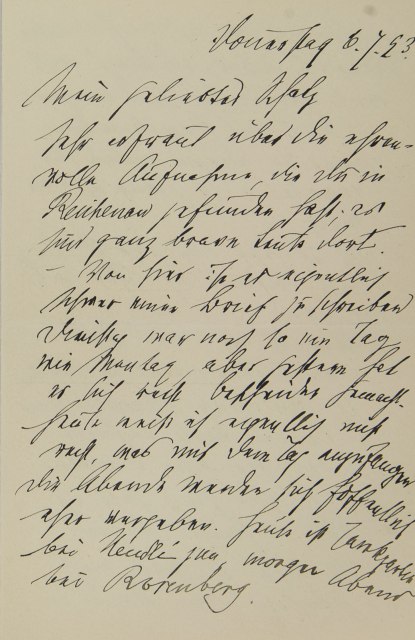 Donnerstag 6.7.93.
Mein geliebter Schatz
Sehr erfreut über die ehren-
volle Aufnahme, die du in
Reichenau gefunden hast; es
sind ganz brave Leute dort.
– Von hier ist es eigentlich
schwer einen Brief zu schreiben
Dienstag war noch so ein Tag
wie Montag, aber gestern hat
es sich recht bescheiden gemacht.
Heute weiß ich eigentlich nicht
recht, was mit dem Tag anzufangen
die Abende werden sich hoffentlich
eher vergeben. Heute ist
bei morgen Abend
bei Rosenberg.